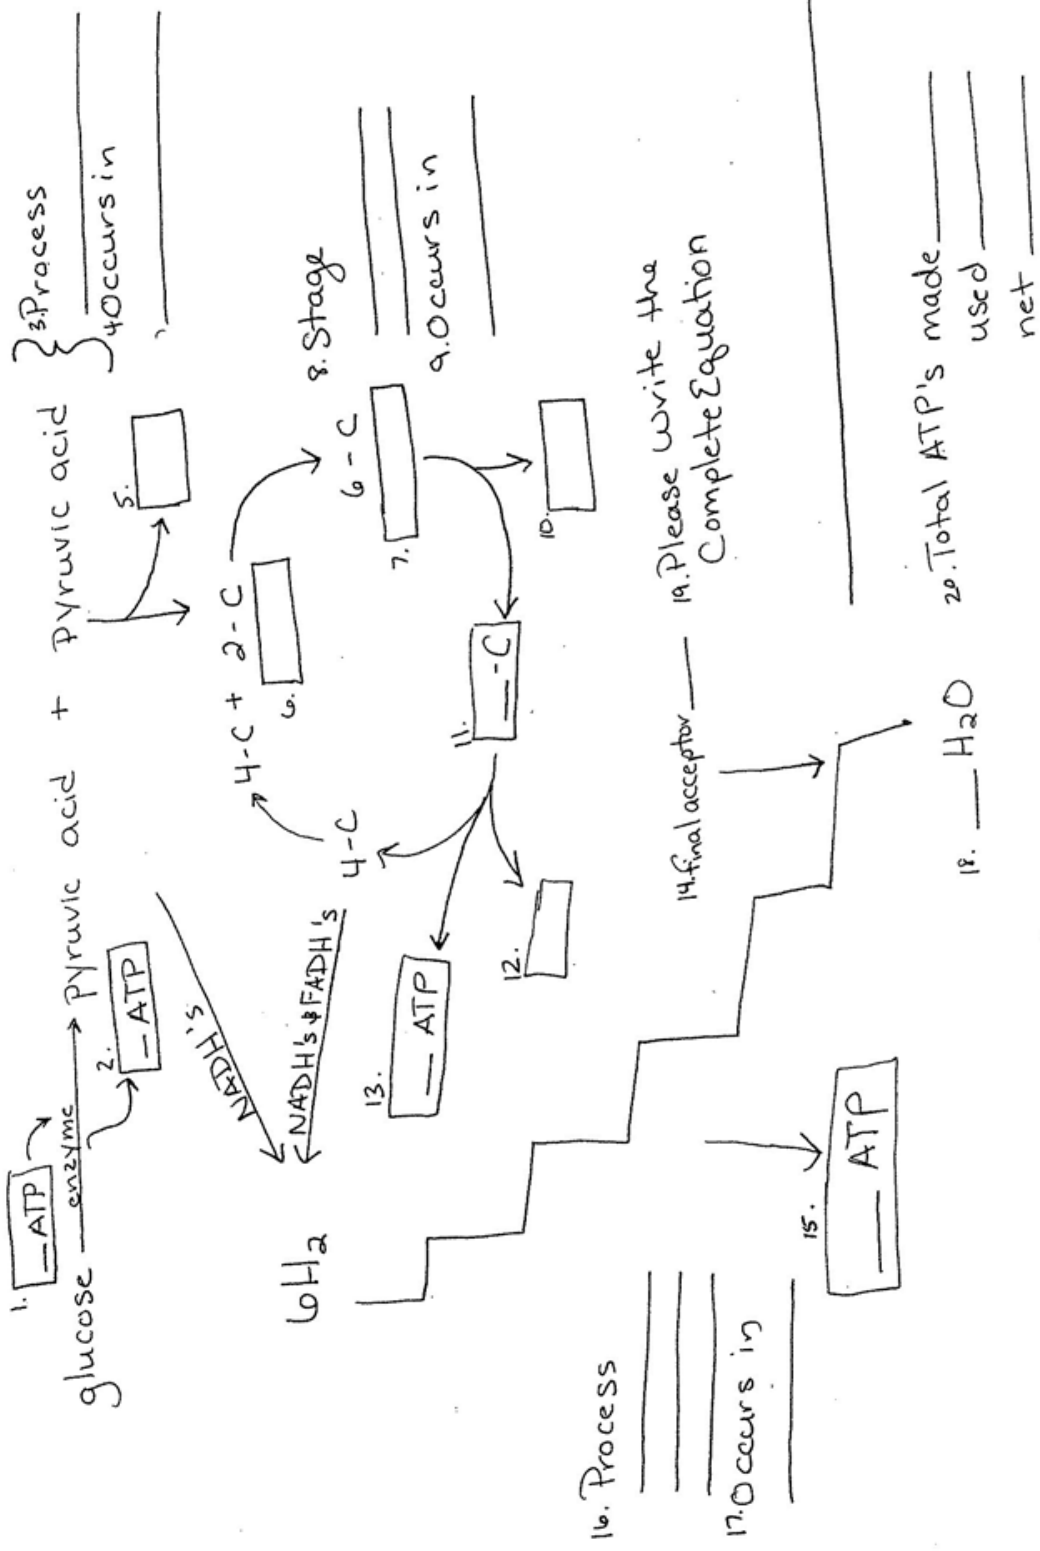 1. _ATP
glucose enzyme pyruvic acid + pyruvic acid
2. _ATP
}3.Process
4Occurs in
5.
NADH's
6H2
NADH's & FADH's
4-C
4-C + 2-C
6.
6-C
7.
8. Stage
9. Occurs in
10.
11. __-C
12.
13. __ ATP
14. final acceptor __
15. ___ ATP
16. Process
17. Occurs in
18. ___ H2O
19. Please Write the
Complete Equation
20. Total ATP's made ____
used ____
net ____